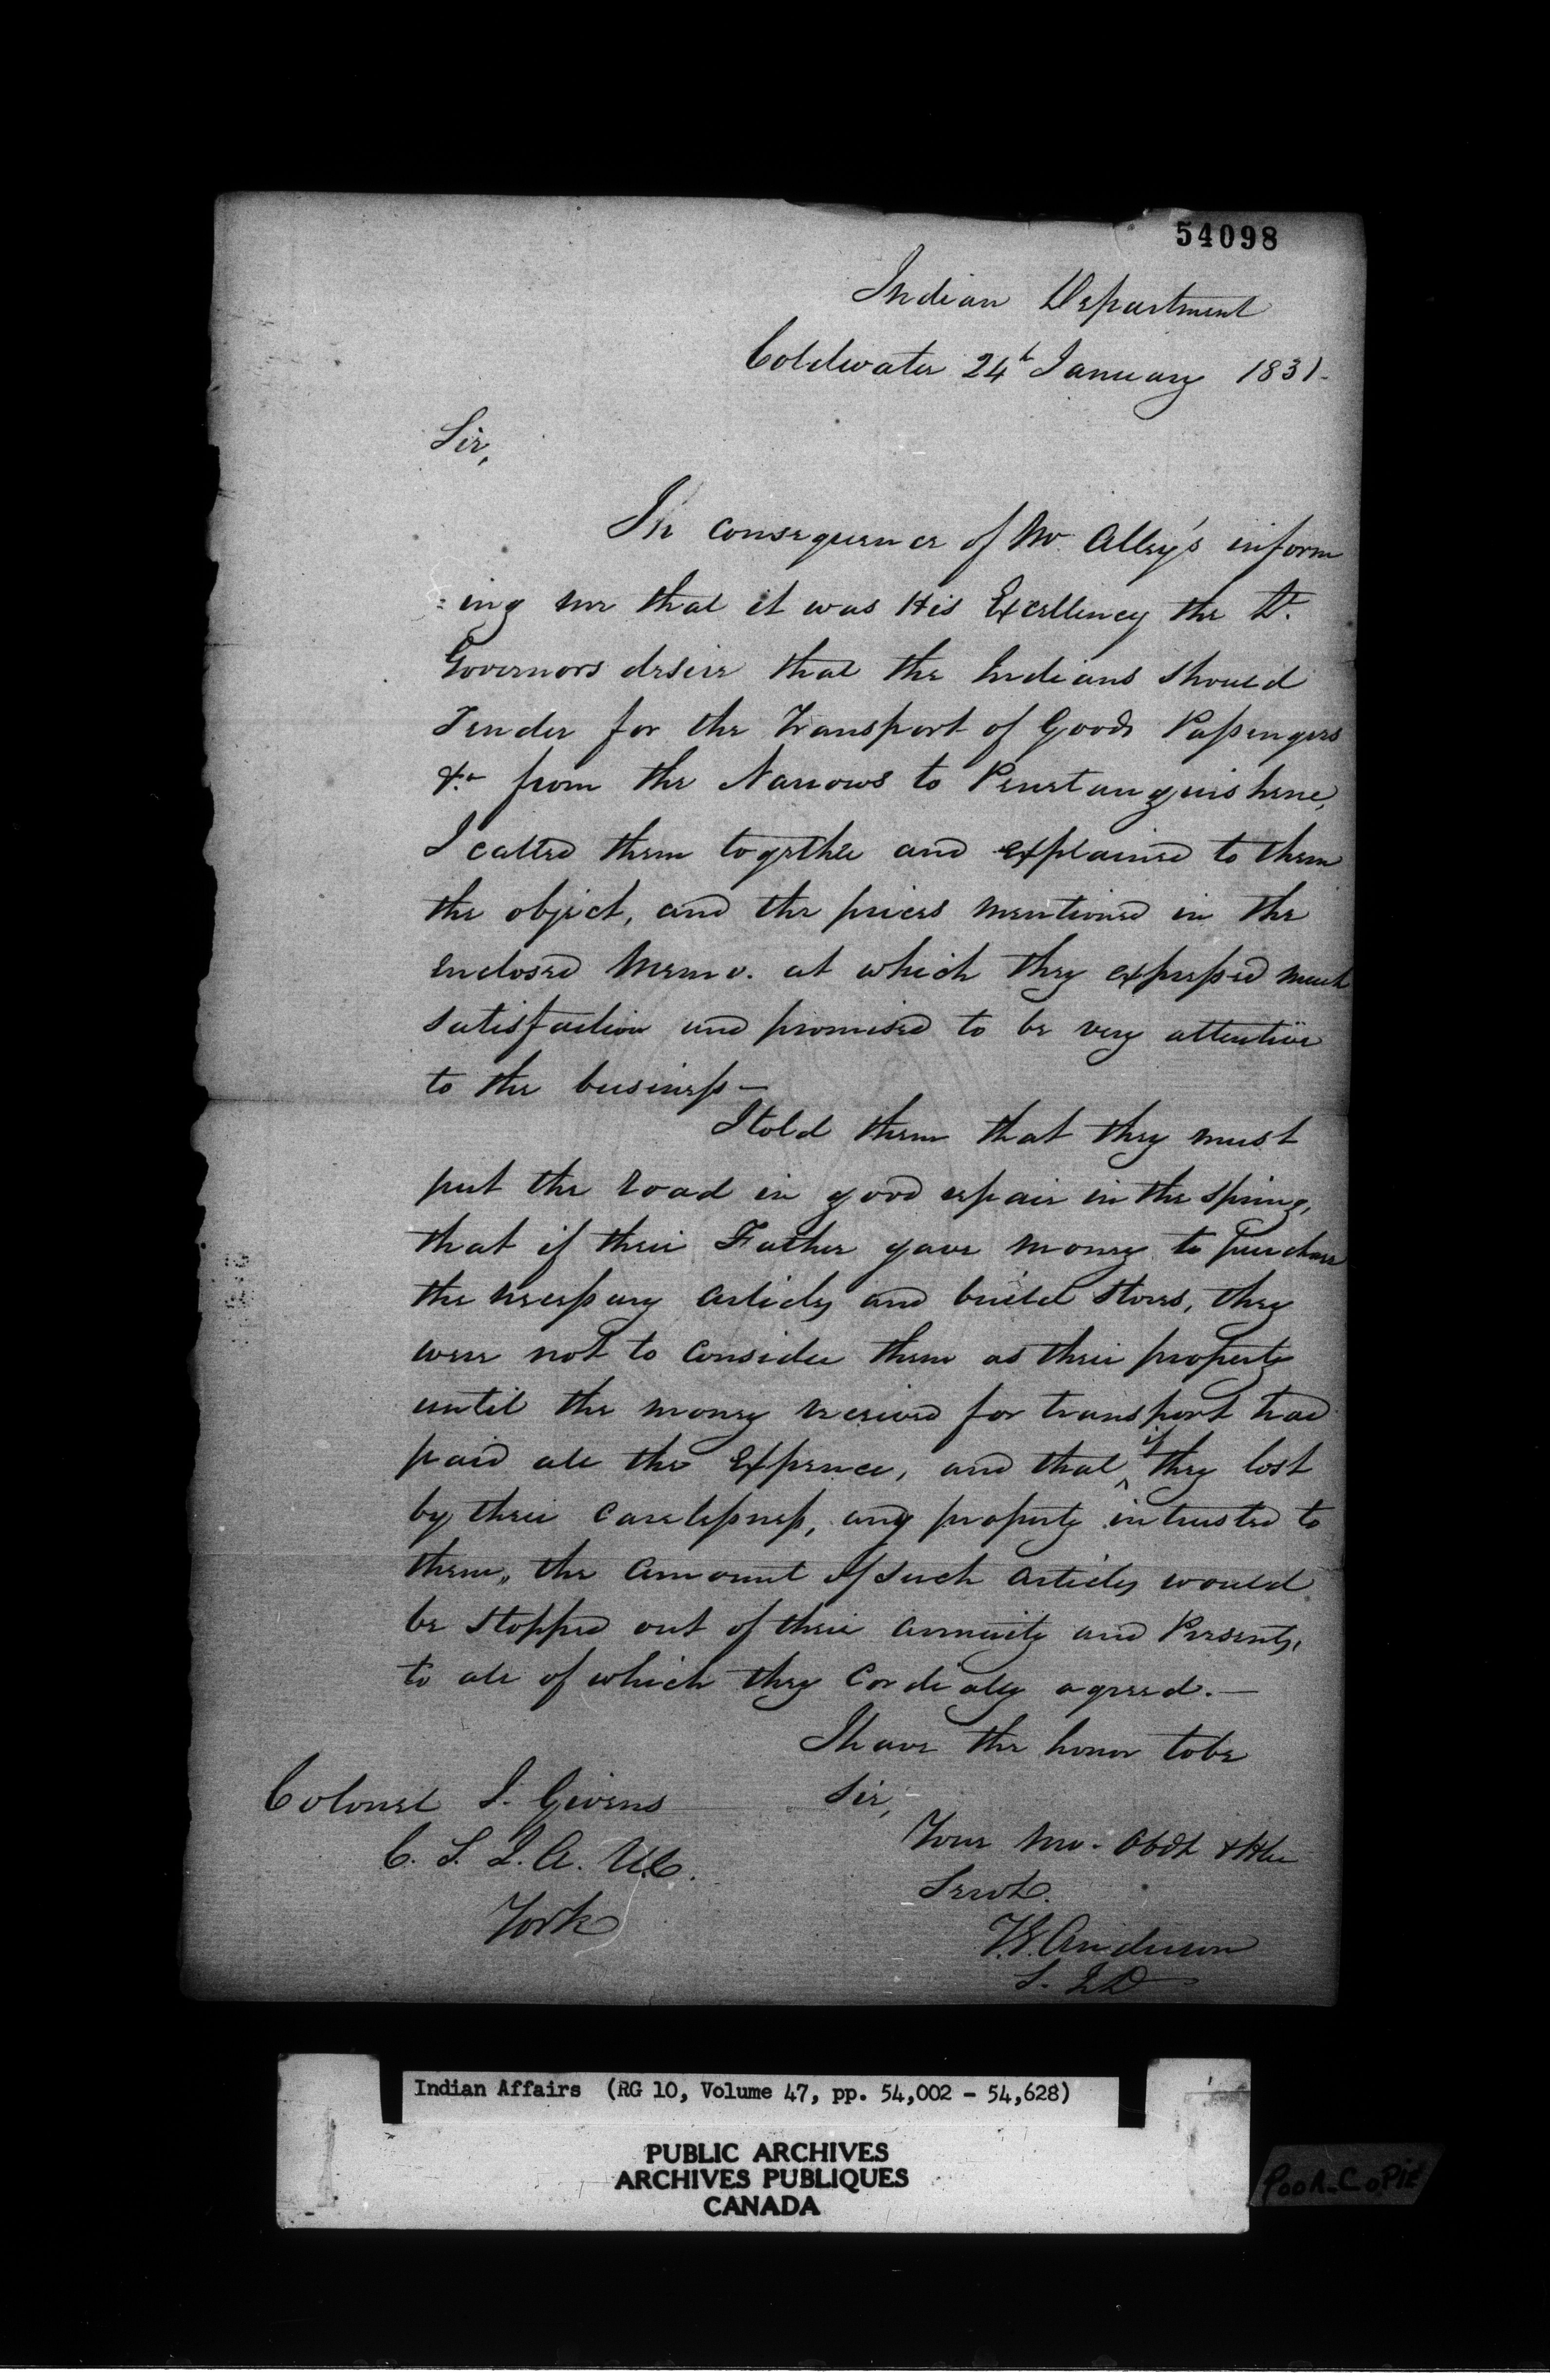 54098
Indian Department
Coldwater 24th January 1831.
Sir,
In consequence of Mr. Alley's inform
=ing me that it was His Excellency the Lt.
Governors desire that the Indians should
Tender for the Transport of Goods Passengers
&c from the Narrows to Penetanguishene,
I called them together and explained to them
the object, and the prices mentioned in the
enclosed Memo. at which they expressed much
satisfaction and promised to be very attentive
to the business—
I told them that they must
put the road in good repair in the spring,
that if their Father gave money to purchase
the necessary articles and build stores, they
were not to consider them as their property
until the money received for transport had
paid all the Expence, and that if they lost
by their carelessness, any property intrusted to
them, the amount of such articles would
be stopped out of their annuity and Presents,
to all of which they Cordialy agreed.—
I have the honor to be
Sir,
Your Mo. Obdt & Hle
Servt.
T.G. Anderson
S. I D
Colonel J. Givens
C. S. I. A. U.C.
York
Indian Affairs (RG 10, Volume 47, pp. 54,002 - 54,628)
PUBLIC ARCHIVES
ARCHIVES PUBLIQUES
CANADA
POOR-COPIE